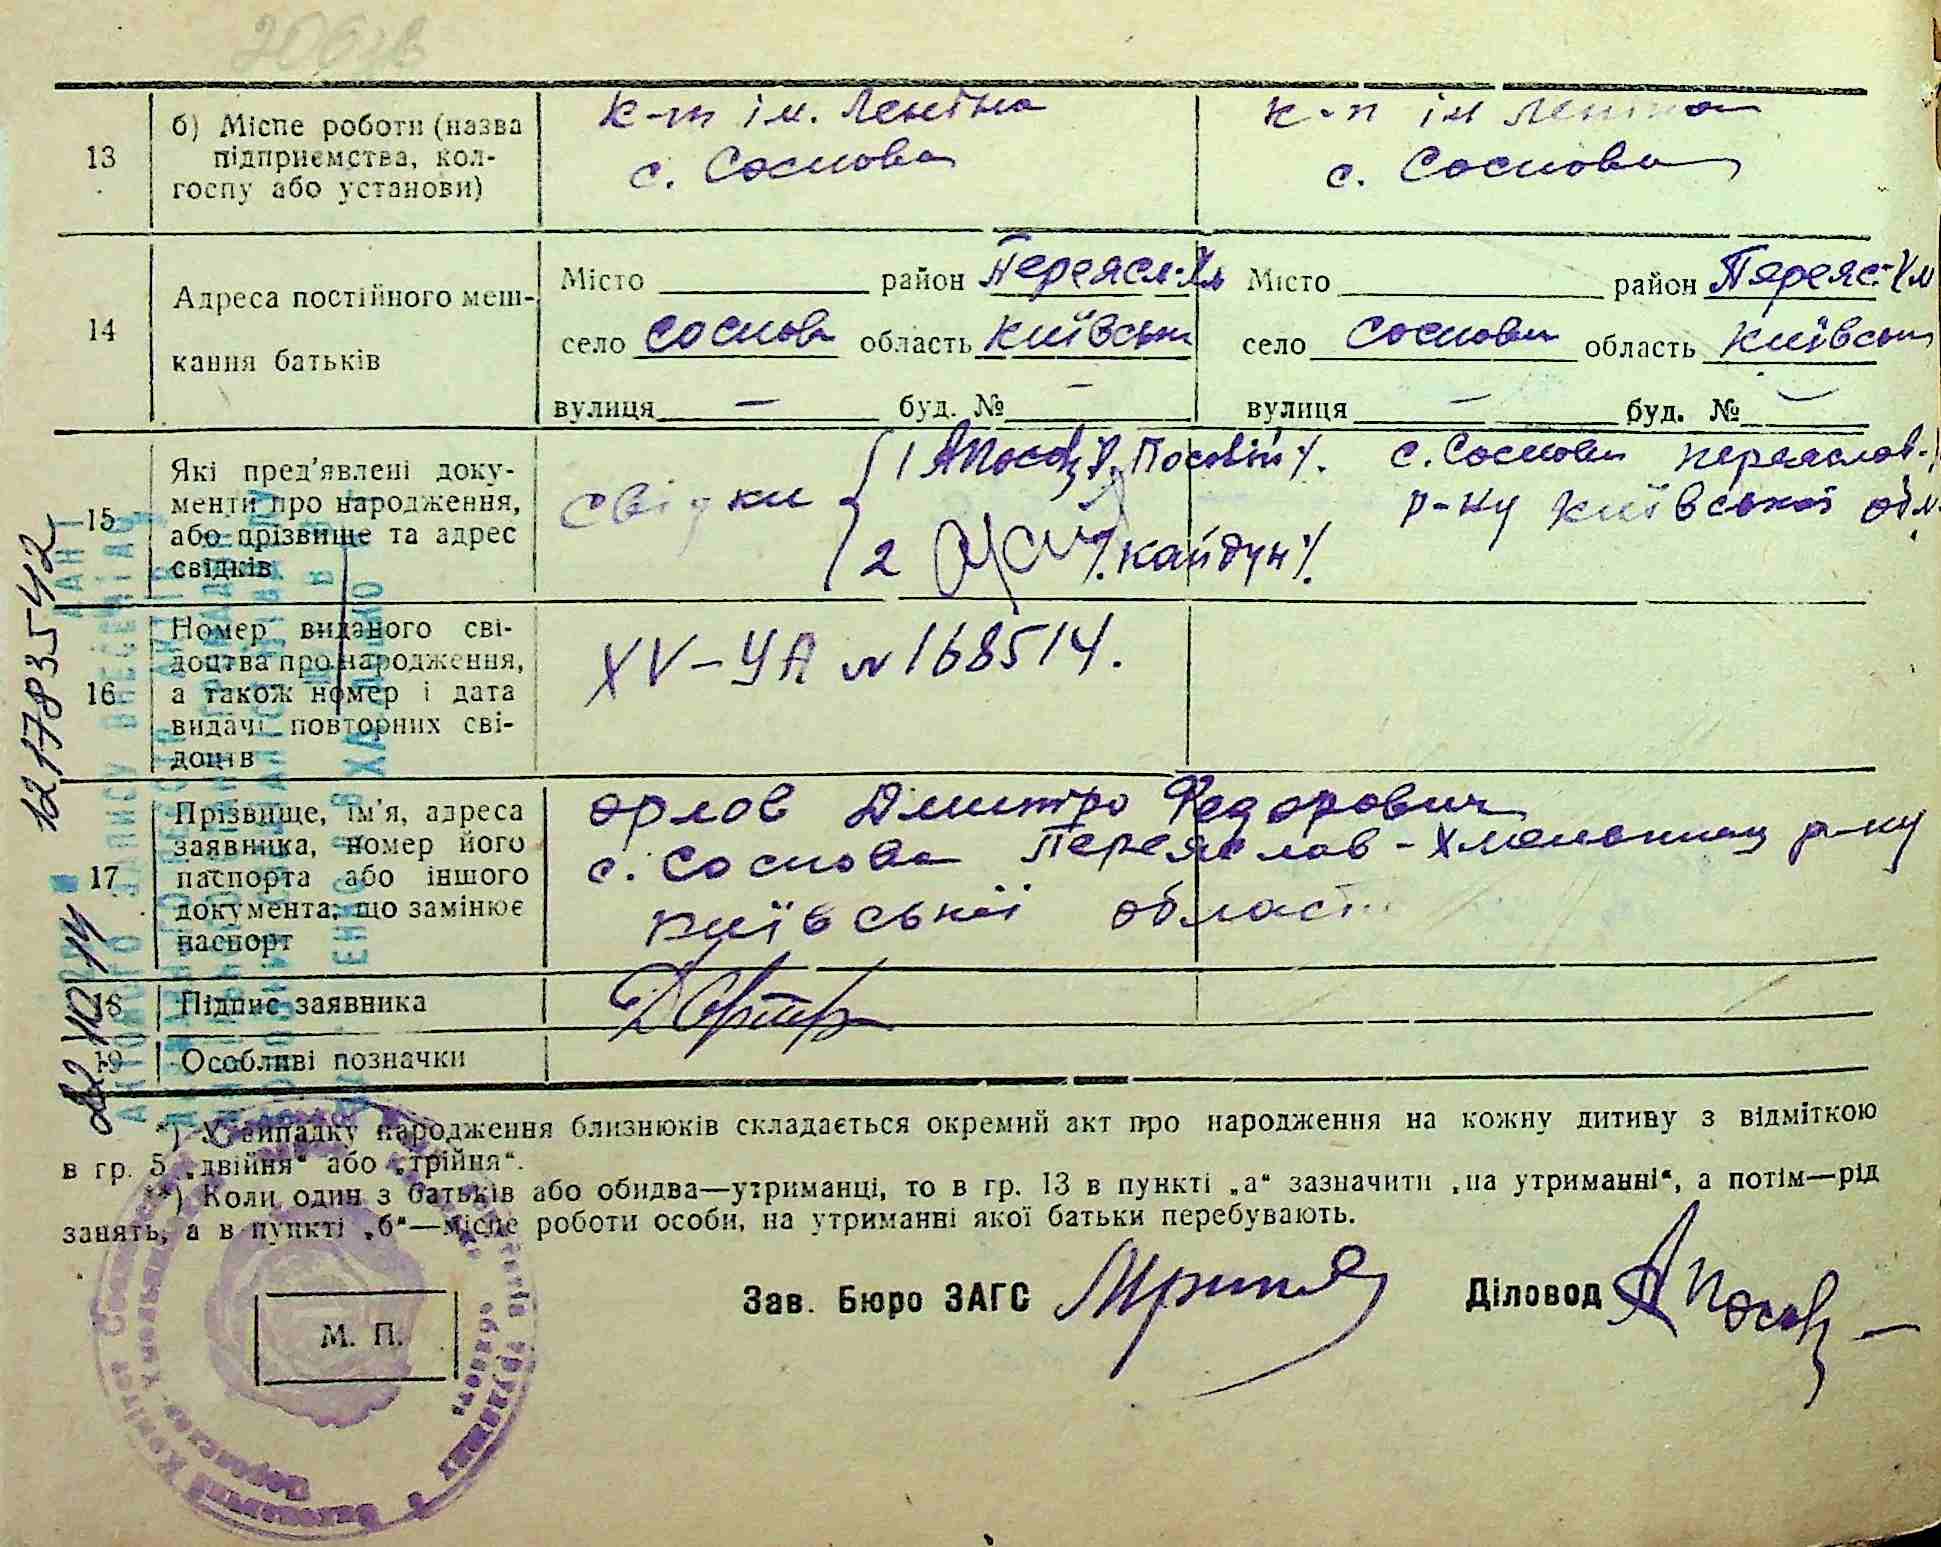 13
б) Місце роботи (назва
підприємства, кол-
госпу або установи)
к-т ім. Леніна
с. Соснова
к-п ім Леніна
с. Соснова
14
Адреса постійного меш-
кання батьків
Місто район Переясл-Хм
село Соснова область Київськ
вулиця — буд. № —
Місто район Переяс-Хм
село Соснова область Київськ
вулиця — буд. № —
15
Які пред'явлені доку-
менти про народження,
або прізвище та адрес
свідків
свідки
1 АПосов /Посовій/. с. Соснова Переяслав-
р-ну Київської обл.
2 /Кайдун/.
16
Номер виданого сві-
доцтва про народження,
а також номер і дата
видачі повторних сві-
доцтв
XV-УА № 168514.
17
Прізвище, ім'я, адреса
заявника, номер його
паспорта або іншого
документа, що замінює
паспорт
Орлов Дмитро Федорович
с. Соснова Переяслав-Хмельниц р-ну
Київської області
18
Підпис заявника
19
Особливі позначки
*) У випадку народження близнюків складається окремий акт про народження на кожну дитину з відміткою
в гр. 5 „двійня“ або „трійня“.
**) Коли один з батьків або обидва—утриманці, то в гр. 13 в пункті „а“ зазначити „на утриманні“, а потім—рід
занять, а в пункті „б“—місце роботи особи, на утриманні якої батьки перебувають.
Зав. Бюро ЗАГС
Діловод
М. П.
12178 3542